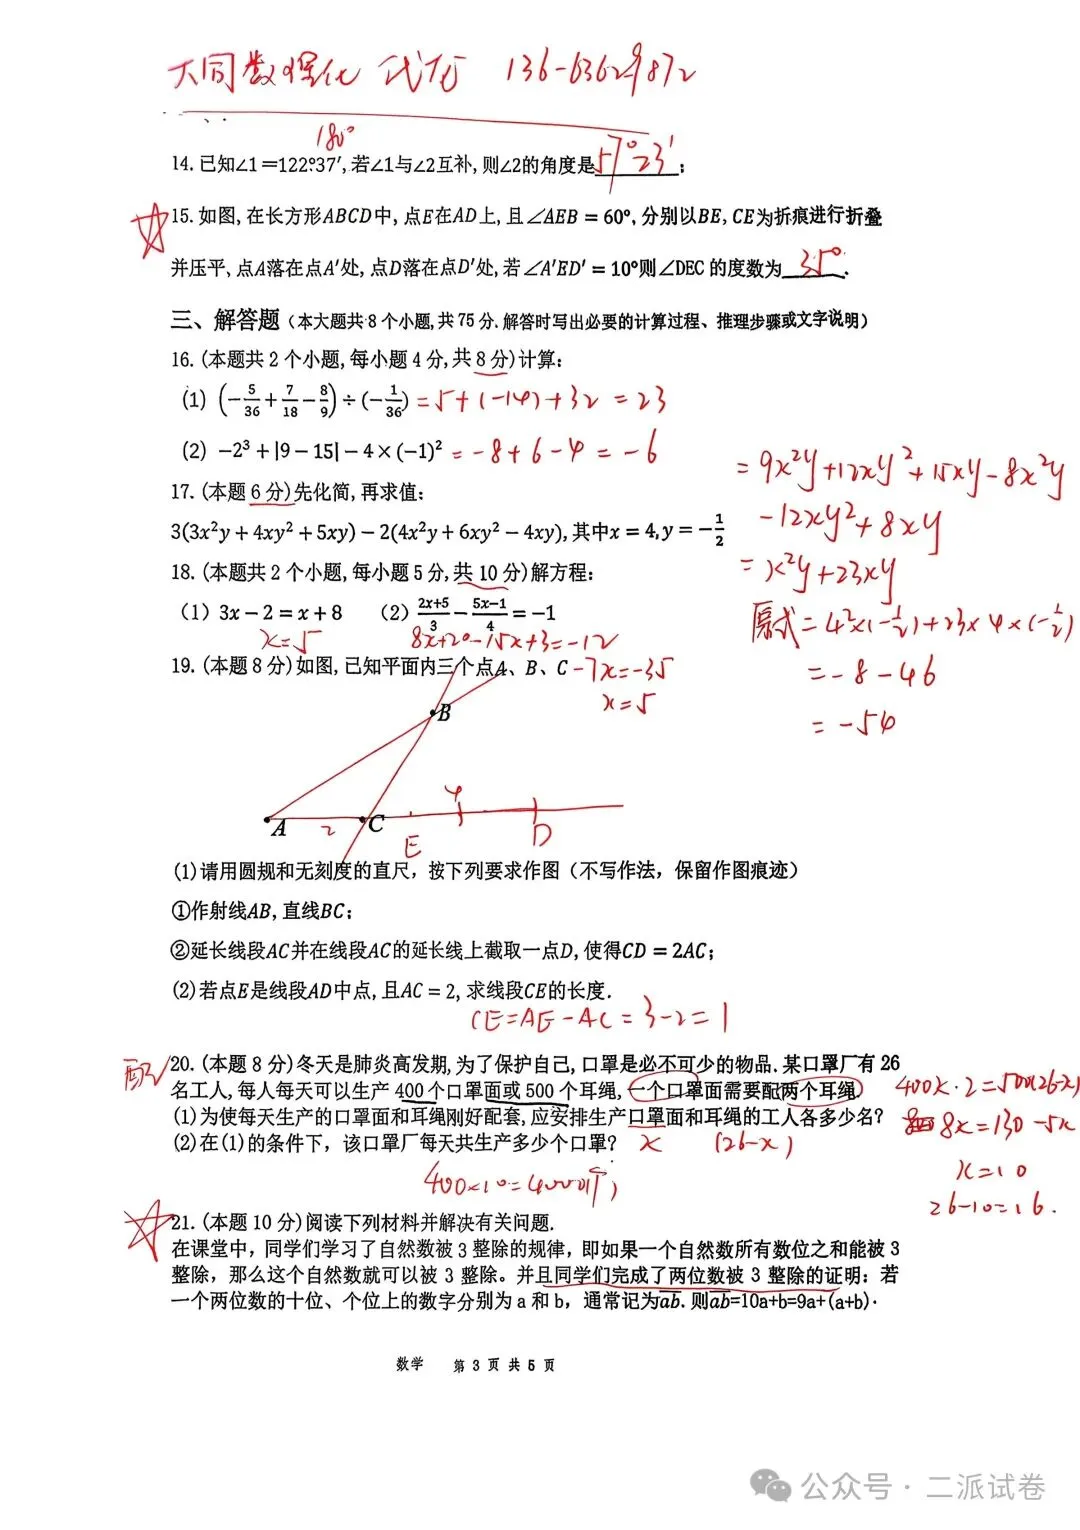 大同数理化 代龙 136-63629872
180°
14.已知∠1=122°37′,若∠1与∠2互补,则∠2的角度是57°23′;
15.如图,在长方形ABCD中,点E在AD上,且∠AEB=60°,分别以BE,CE为折痕进行折叠
并压平,点A落在点A′处,点D落在点D′处,若∠A′ED′=10°则∠DEC的度数为35°.
三、解答题(本大题共8个小题,共75分.解答时写出必要的计算过程、推理步骤或文字说明)
16.(本题共2个小题,每小题4分,共8分)计算:
(1) (-5/36+7/18-8/9)÷(-1/36) =5+(-14)+32=23
(2) -2³+|9-15|-4×(-1)² =-8+6-4=-6
17.(本题6分)先化简,再求值:
3(3x²y+4xy²+5xy)-2(4x²y+6xy²-4xy),其中x=4,y=-1/2
=9x²y+12xy²+15xy-8x²y
-12xy²+8xy
=x²y+23xy
原式=4²×(-1/2)+23×4×(-1/2)
=-8-46
=-54
18.(本题共2个小题,每小题5分,共10分)解方程:
(1) 3x-2=x+8 (2) (2x+5)/3-(5x-1)/4=-1
x=5 8x+20-15x+3=-12
-7x=-35
x=5
19.(本题8分)如图,已知平面内三个点A、B、C
B
A 2 C E 4 D
(1)请用圆规和无刻度的直尺，按下列要求作图（不写作法，保留作图痕迹）
①作射线AB,直线BC;
②延长线段AC并在线段AC的延长线上截取一点D,使得CD=2AC;
(2)若点E是线段AD中点,且AC=2,求线段CE的长度.
CE=AE-AC=3-2=1
20.(本题8分)冬天是肺炎高发期,为了保护自己,口罩是必不可少的物品.某口罩厂有26
名工人,每人每天可以生产400个口罩面或500个耳绳,一个口罩面需要配两个耳绳.
(1)为使每天生产的口罩面和耳绳刚好配套,应安排生产口罩面和耳绳的工人各多少名?
(2)在(1)的条件下，该口罩厂每天共生产多少个口罩?
x (26-x)
400×10=4000个;
400x·2=500(26-x)
8x=130-5x
x=10
26-10=16.
21.(本题10分)阅读下列材料并解决有关问题.
在课堂中，同学们学习了自然数被3整除的规律，即如果一个自然数所有数位之和能被3
整除，那么这个自然数就可以被3整除。并且同学们完成了两位数被3整除的证明：若
一个两位数的十位、个位上的数字分别为a和b，通常记为ab.则ab=10a+b=9a+(a+b).
数学 第3页共5页
公众号·二派试卷